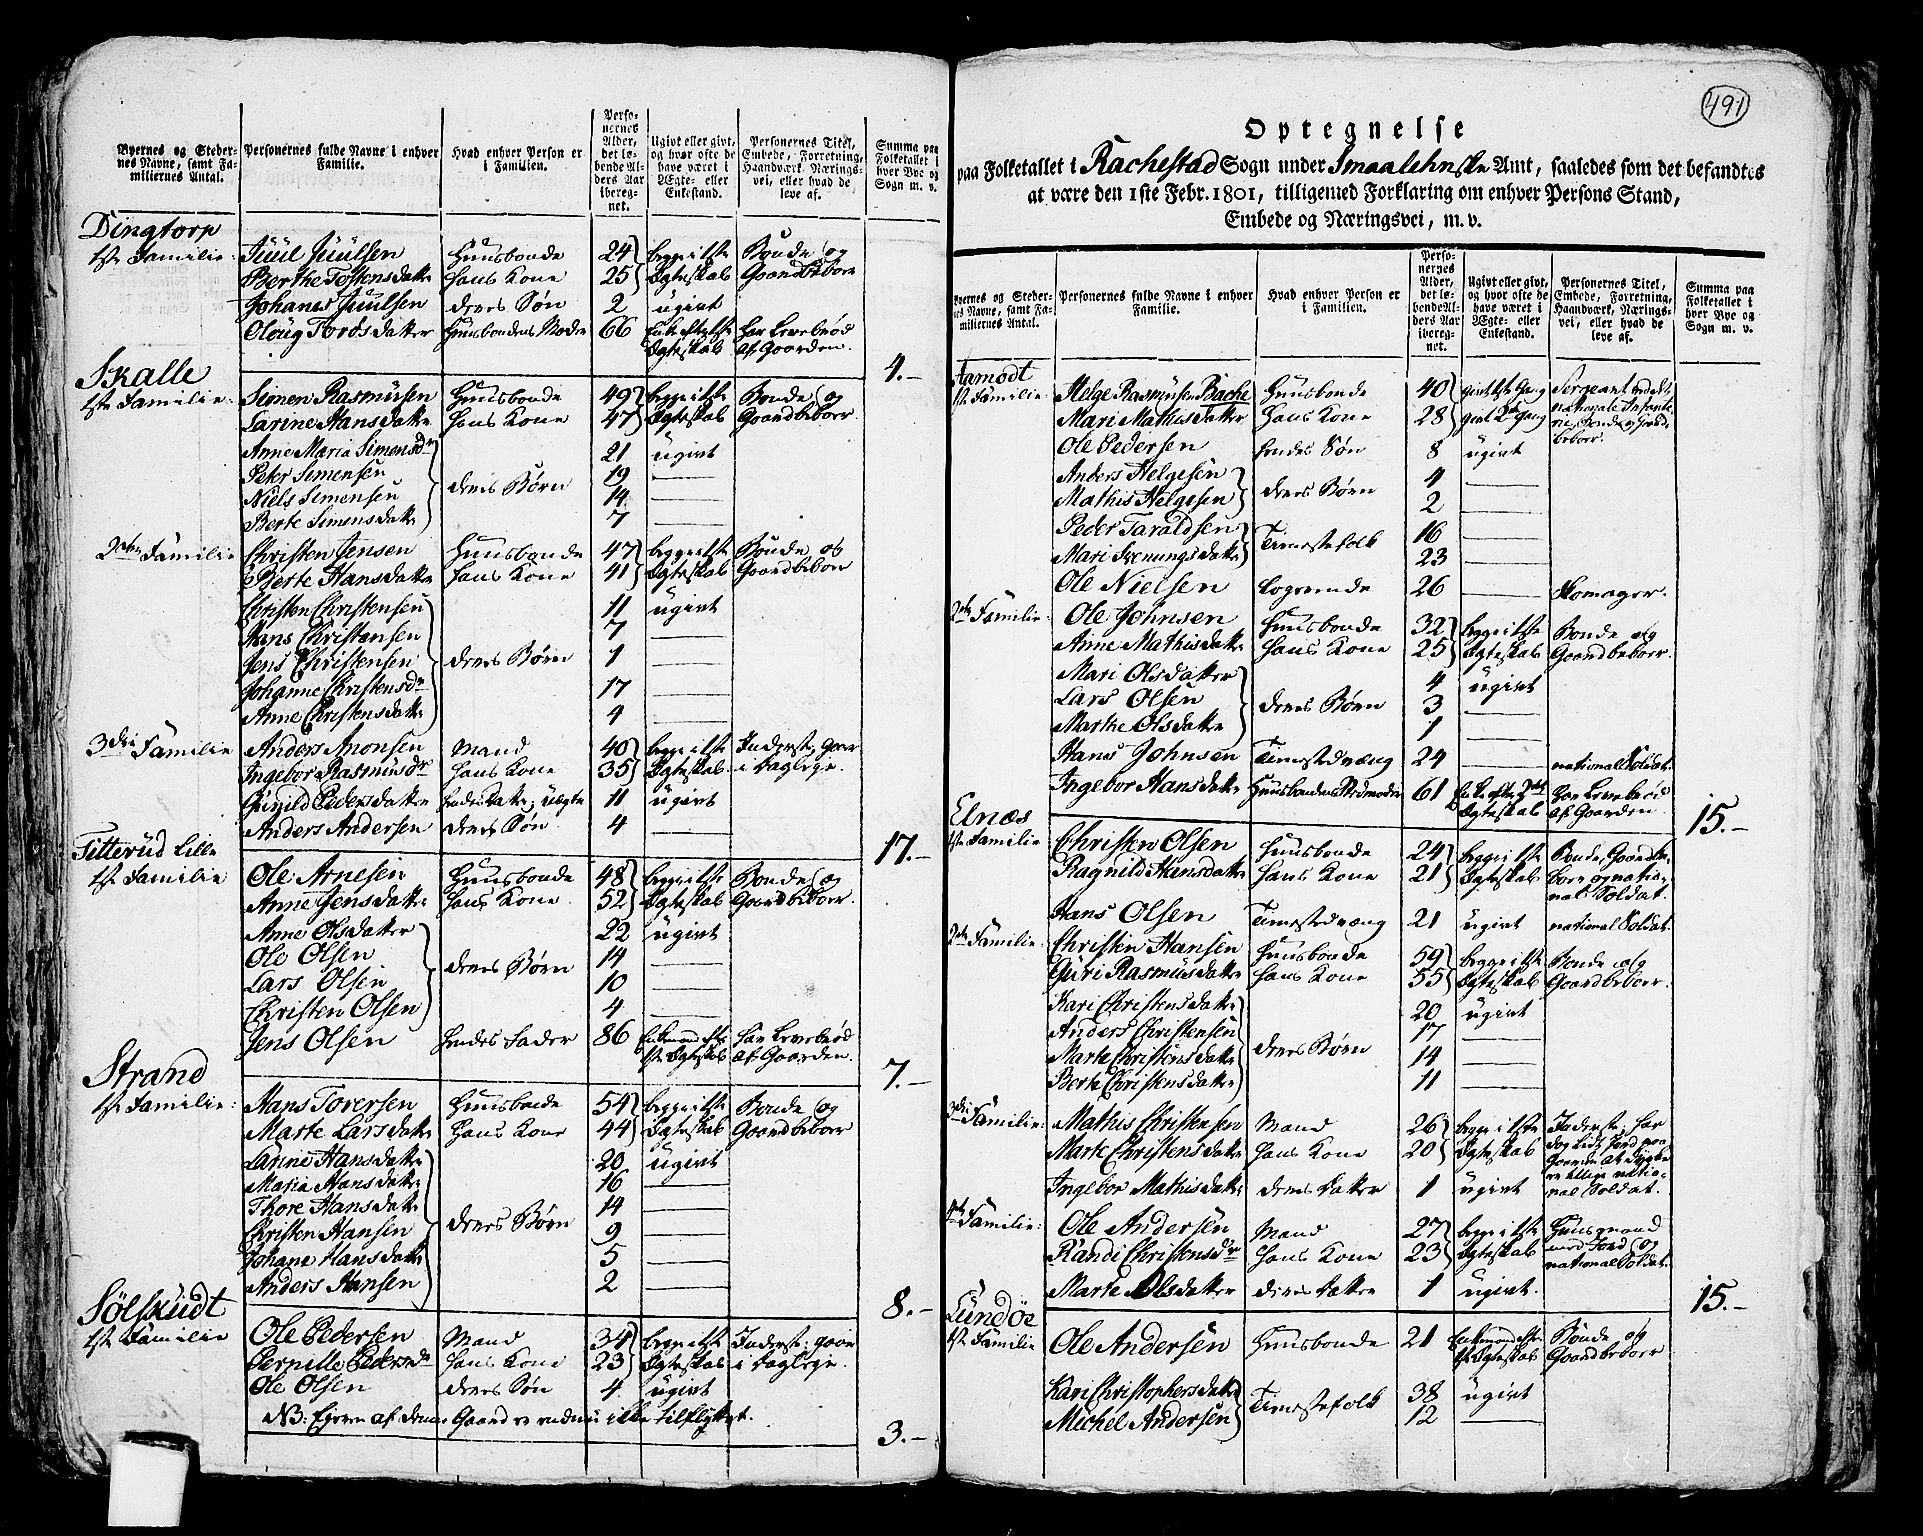 491
Byernes og Steder- Personernes fulde Navne i enhver Hvad enhver Person er Perso- Ugivt eller givt, Personernes Titel, Summa paa
nes Navne, samt Fa- Familie. i Familien. nernes og hvor ofte de Embede, Forretning, Folketallet i
miliernes Antal. Alder, have været i Haandværk, Nærings- hver Bye og
det lø- Ægte- eller vei, eller hvad de Sogn m. v.
bende Al- Enkestand. leve af.
ders Aar
ibereg-
net.
Dingtorp
1ste Familie: Juul Juulsen Huusbonde 24 begge i 1ste Bonde og
Berthe Tostensdatter hans Kone 25 Ægteskab Gaardbeboer
Johanes Juulsen deres Søn 2 ugivt
Oloug Tordsdatter Huusbondens Moder 66 Enke efter 1ste har Levebrød
Ægteskab af Gaarden.
4.-
Skalle
1ste Familie: Simen Rasmusen Huusbonde 49 begge i 1ste Bonde og
Karine Hansdatter hans Kone 47 Ægteskab Gaardbeboer
Anne Maria Simensdr 21 ugivt
Peter Simensen 19
Niels Simensen deres Børn 14
Berte Simensdatter 7
2den Familie Christen Jensen Huusbonde 47 begge i 1ste Bonde og
Berte Hansdatter hans Kone 41 Ægteskab Gaardbeboer
Christen Christensen 11 ugivt
Hans Christensen 7
Jens Christensen deres Børn 1
Johanne Christensdr 17
Anne Christensdatter 4
3die Familie Anders Amonsen Mand 40 begge i 1ste Inderste, gaar
Ingebor Rasmusdr hans Kone 35 Ægteskab i Dagleye.
Gunild Pedersdatter hendes Datter, uægte 11 ugivt
Anders Andersen deres Søn 4
17.-
Titterud Lille
1ste Familie Ole Arnesen Huusbonde 48 begge i 1ste Bonde og
Anne Jensdatter hans Kone 52 Ægteskab Gaardbeboer.
Anne Olsdatter 22 ugivt
Ole Olsen 14
Lars Olsen deres Børn 10
Christen Olsen 4
Jens Olsen hendes Fader 86 Enkemand efter har Levebrød
1ste Ægteskab af Gaarden.
7.-
Strand
1ste Familie: Hans Torersen Huusbonde 54 begge i 1ste Bonde og
Marte Larsdatter hans Kone 44 Ægteskab Gaardbeboer
Karine Hansdatter 20 ugivt
Maria Hansdatter 16
Thore Hansdatter 14
Christen Hansen deres Børn 9
Johane Hansdatter 5
Anders Hansen 2
8.-
Sølskudt
1ste Familie Ole Pedersen Mand 34 begge i 1ste Inderste: gaar
Pernille Pedersdr hans Kone 23 Ægteskab i Dagleye.
Ole Olsen deres Søn 4 ugivt
NB: Ejeren af denne Gaard er endnu ikke tilflyttet.
3.-
Optegnelse
paa Folketallet i Rachestad Sogn under Smaalehnske Amt, saaledes som det befandtes
at være den 1ste Febr. 1801, tilligemed Forklaring om enhver Persons Stand,
Embede og Næringsvei, m. v.
Byernes og Steder- Personernes fulde Navne i enhver Hvad enhver Person er Perso- Ugivt eller givt, Personernes Titel, Summa paa
nes Navne, samt Fa- Familie. i Familien. nernes og hvor ofte de Embede, Forretning, Folketallet i
miliernes Antal. Alder, have været i Haandværk, Nærings- hver Bye og
det lø- Ægte- eller vei, eller hvad de Sogn m. v.
bende Al- Enkestand. leve af.
ders Aar
ibereg-
net.
Aamodt
1ste Familie: Helge Rasmusen Bache Huusbonde 40 givt 1ste Gang Sergeant ved det
Mari Mathisdatter hans Kone 28 givt 2den Gang nationale Infante-
rie, Bonde og Gaard-
beboer.
Ole Pedersen hendes Søn 8 ugivt
Anders Helgesen 4
Mathis Helgesen deres Børn 2
Peder Taraldsen 16
Mari Svenungsdatter Tienestefolk 23
Ole Nielsen Logerende 26 Skomager.
2den Familie: Ole Johnsen Huusbonde 32 begge i 1ste Bonde og
Anne Mathisdatter hans Kone 25 Ægteskab Gaardbeboer.
Mari Olsdatter 4 ugivt
Lars Olsen deres Børn 3
Marthe Olsdatter 1
Hans Johnsen Tienestedræng 24 national Soldat.
Ingebor Hansdatter Huusbondens Stedmoder 61 Enke efter 2det har Levebrød
Ægteskab af Gaarden.
15.-
Elnæs
1ste Familie Christen Olsen Huusbonde 24 begge i 1ste Bonde, Gaardbe-
Ragnild Hansdatter hans Kone 21 Ægteskab boer og natio-
nal Soldat.
Hans Olsen Tienestedræng 21 ugivt national Soldat.
2den Familie: Christen Hansen Huusbonde 59 begge i 1ste Bonde og
Guri Rasmusdatter hans Kone 55 Ægteskab Gaardbeboer.
Kari Christensdatter 20 ugivt
Anders Christensen 17
Marte Christensdatter deres Børn 14
Berte Christensdatter 11
3die Familie: Mathis Christensen Mand 26 begge i 1ste Inderste, har
Marte Christensdatter hans Kone 20 Ægteskab dog lidt Jord paa
Gaarden at dyrke
er tillige natio-
Ingebor Mathisdatter deres Datter 1 ugivt nal Soldat.
4de Familie: Ole Andersen Mand 27 begge i 1ste Huusmand
Randi Christensdr hans Kone 23 Ægteskab med Jord og
national Soldat.
Marte Olsdatter deres Datter 1 ugivt.
15.-
Lundør
1ste Familie Ole Andersen Huusbonde 21 Enkemand efter Bonde og
1ste Ægteskab Gaardbeboer
Kari Christophersdatter 38 ugivt
Michel Andersen Tienestefolk 12